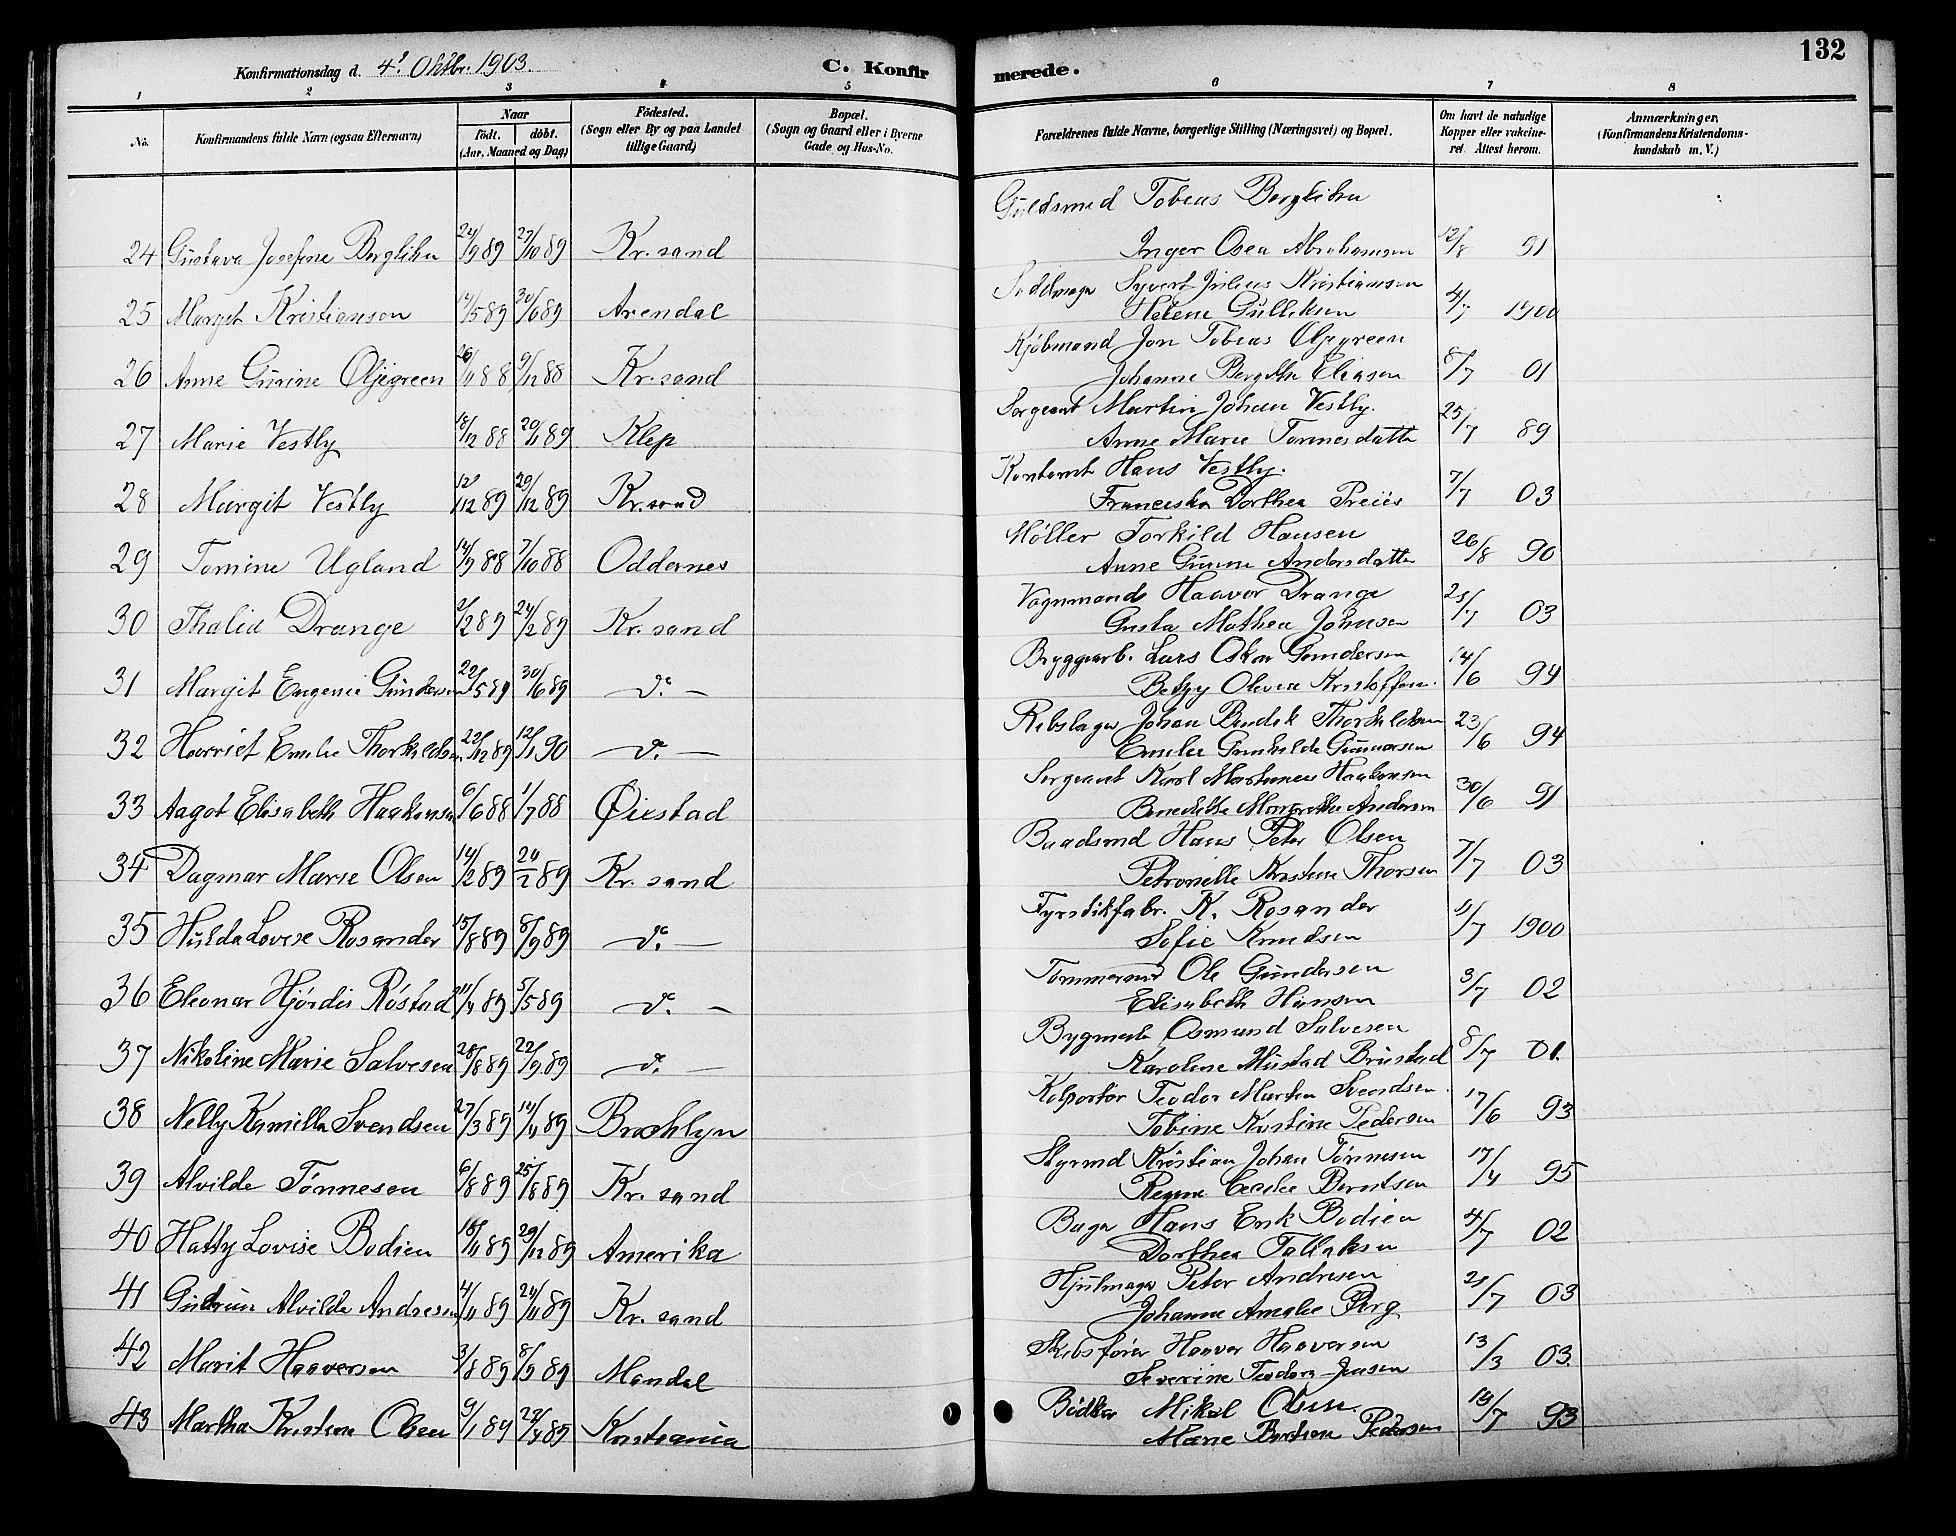 Konfirmationsdag d. 4' Oktbr. 1903. C. Konfirmerede. 132
1 2 3 4 5 6 7 8
No. Konfirmandens fulde Navn (ogsaa Efternavn) Naar födt. döbt. (Aar, Maaned og Dag) Födested. (Sogn eller By og paa Landet tillige Gaard) Bopæl. (Sogn og Gaard eller i Byerne Gade og Hus-No. Forældrenes fulde Navne, borgerlige Stilling (Næringsvei) og Bopæl. Om havt de naturlige Kopper eller vaccineret. Attest herom. Anmærkninger. (Konfirmandens Kristendomskundskab m. V.)
Guldsmed Tobias Berglihn
24 Gustava Josefine Berglihn 24/9 89 27/10 89 Kr. sand Inger Osea Abrahamsen 12/8 91
Sadelmager Syvert Julius Kristiansen
25 Margit Kristiansen 14/5 89 30/6 89 Arendal Helene Gulliksen 4/7 1900
Kjöbmand Jon Tobias Oljegreen
26 Anne Gurine Oljegreen 26/11 88 9/12 88 Kr. sand Johanne Bergitte Eliasen 8/7 01
Sergeant Martin Johan Vestly.
27 Marie Vestly 18/12 88 20/1 89 Klep Anne Marie Tonnesdatter 25/7 89
Kontorist Hans Vestly.
28 Margit Vestly 12/12 89 29/12 89 Kr. sand Franciska Dorthea Preus 7/7 03
Møller Torkild Hansen
29 Tomine Ugland 14/9 88 7/10 88 Oddernes Anne Gurine Andersdatter 26/8 90
Vognmand Haavor Drange
30 Thalia Drange 2/2 89 24/2 89 Kr. sand Gusta Mathea Johnsen 25/7 03
Bryggearb. Lars Oskar Gundersen
31 Margit Eugenie Gundersen 22/5 89 30/6 89 do - Betzy Olevia Kristoffersen. 14/6 94
Rebslager Johan Bendik Thorkildsen
32 Harriet Emilie Thorkildsen 22/12 89 12/1 90 do - Emilie Gunhilde Gunnarsen 23/6 94
Sergeant Karl Martinius Haakonsen
33 Aagot Elisabeth Haakonsen 6/6 88 1/7 88 Øiestad Benedikte Margrethe Andersen 30/6 91
Baadsmd Hans Peter Olsen
34 Dagmar Marie Olsen 14/2 89 24/2 89 Kr. sand Petronelle Kristene Thorsen 7/7 03
Fyrstikfabr. K. Rosander
35 Hulda Lovise Rosander 15/8 89 8/9 89 do - Sofie Knudsen 11/7 1900
Tømmermd Ole Gundersen
36 Eleonar Hjördis Röstad 11/4 89 5/5 89 do - Elisabeth Hansen 3/7 02
Bygmest. Osmund Salvesen
37 Nikoline Marie Salvesen 28/8 89 22/9 89 do - Karoline Mustad Brustad 8/7 01.
Kolportør Teodor Martin Svendsen.
38 Nelly Kamilla Svendsen 27/3 89 14/4 89 Brooklyn Tobine Kristine Pedersen 17/6 93
Styrmd Kristian Johan Tønnesen
39 Alvilde Tönnesen 6/8 89 25/8 89 Kr. sand Regine Cecilie Berntsen 17/4 95
Bager Hans Erik Bodien
40 Hatty Lovise Bodien 18/11 89 29/12 89 Amerika Dorthea Tallaksen 4/7 02
Hjulmager Peter Andresen
41 Gudrun Alvilde Andresen 4/11 89 24/11 89 Kr. sand Johanne Amalie Berg 21/7 03
Skibsfører Haavor Haaversen
42 Marit Haaversen 3/8 89 8/9 89 Mandal Severine Teodora Jensen 13/3 03
Bødker Mikal Olsen.
43 Martha Kristine Olsen 9/1 89 22/4 89 Kristiania Marie Bertine Pedersen 14/7 93